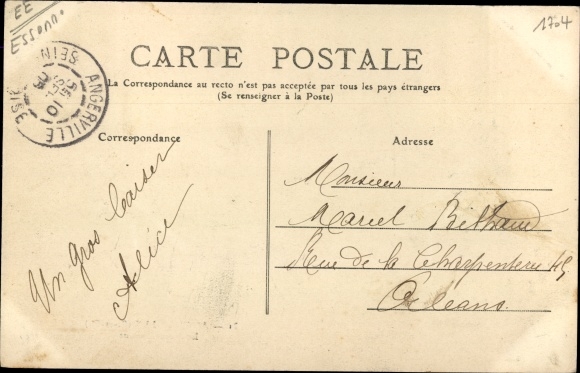 EE
Essonne
1704
ANGERVILLE
SEINE
OISE
10
CARTE POSTALE
La Correspondance au recto n'est pas acceptée par tous les pays étrangers
(Se renseigner à la Poste)
Correspondance
Adresse
Un gros baiser
Alice
Monsieur
Marcel
Rue de la Charpenterie 49
Orléans